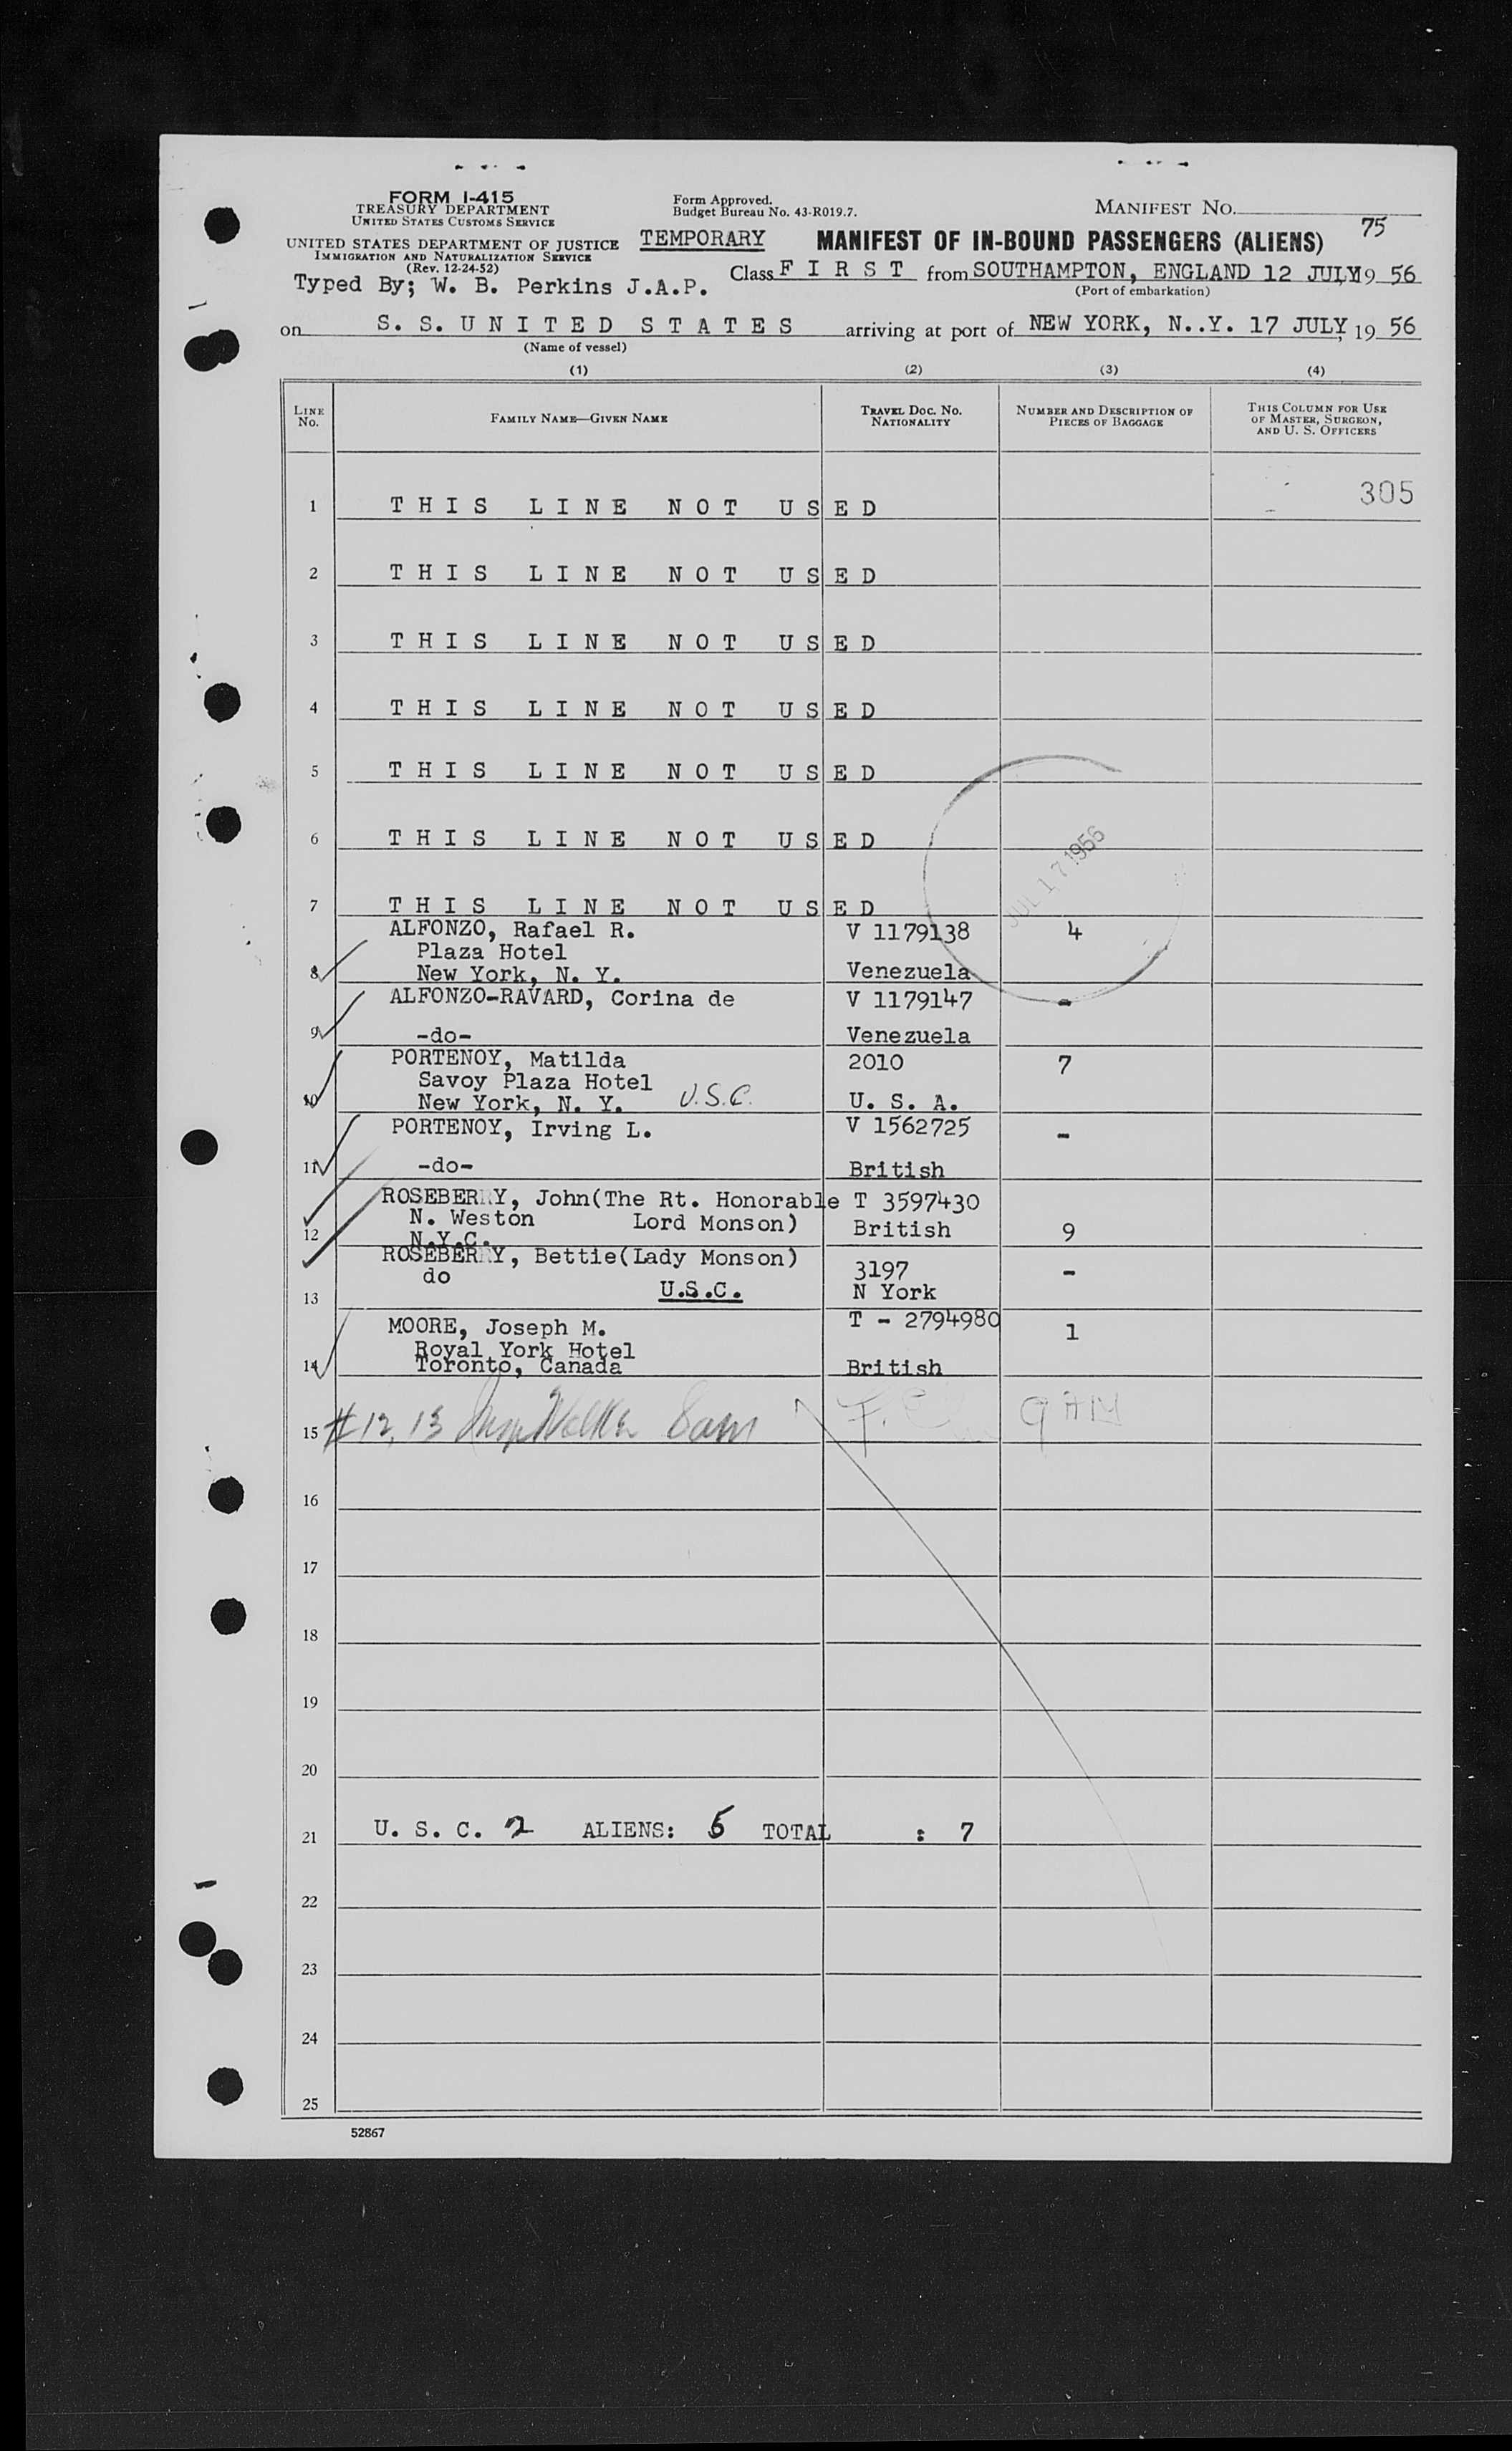 FORM I-415
TREASURY DEPARTMENT
UNITED STATES CUSTOMS SERVICE
UNITED STATES DEPARTMENT OF JUSTICE
IMMIGRATION AND NATURALIZATION SERVICE
(Rev. 12-24-52)
Typed By; W. B. Perkins J.A.P.
Form Approved.
Budget Bureau No. 43-R019.7.
MANIFEST NO.
75
TEMPORARY MANIFEST OF IN-BOUND PASSENGERS (ALIENS)
Class F I R S T from SOUTHAMPTON, ENGLAND 12 JULY, 19 56
(Port of embarkation)
on S. S. U N I T E D S T A T E S arriving at port of NEW YORK, N..Y. 17 JULY, 19 56
(Name of vessel)
(1) (2) (3) (4)
LINE NO. FAMILY NAME—GIVEN NAME TRAVEL DOC. NO. NATIONALITY NUMBER AND DESCRIPTION OF PIECES OF BAGGAGE THIS COLUMN FOR USE OF MASTER, SURGEON, AND U. S. OFFICERS
305
1 T H I S L I N E N O T U S E D
2 T H I S L I N E N O T U S E D
3 T H I S L I N E N O T U S E D
4 T H I S L I N E N O T U S E D
5 T H I S L I N E N O T U S E D
6 T H I S L I N E N O T U S E D
JUL 17 1956
7 T H I S L I N E N O T U S E D
ALFONZO, Rafael R. V 1179138 4
Plaza Hotel
8 New York, N. Y. Venezuela
ALFONZO-RAVARD, Corina de V 1179147 -
9 -do- Venezuela
PORTENOY, Matilda 2010 7
Savoy Plaza Hotel
10 New York, N. Y. U.S.C. U. S. A.
PORTENOY, Irving L. V 1562725 -
11 -do- British
ROSEBERRY, John(The Rt. Honorable T 3597430
N. Weston Lord Monson) British 9
12 N.Y.C.
ROSEBERRY, Bettie(Lady Monson) 3197 -
do
13 U.S.C. N York
MOORE, Joseph M. T - 2794980 1
Royal York Hotel
14 Toronto, Canada British
15 #12, 13
16
17
18
19
20
21 U. S. C. 2 ALIENS: 5 TOTAL : 7
22
23
24
25
52867